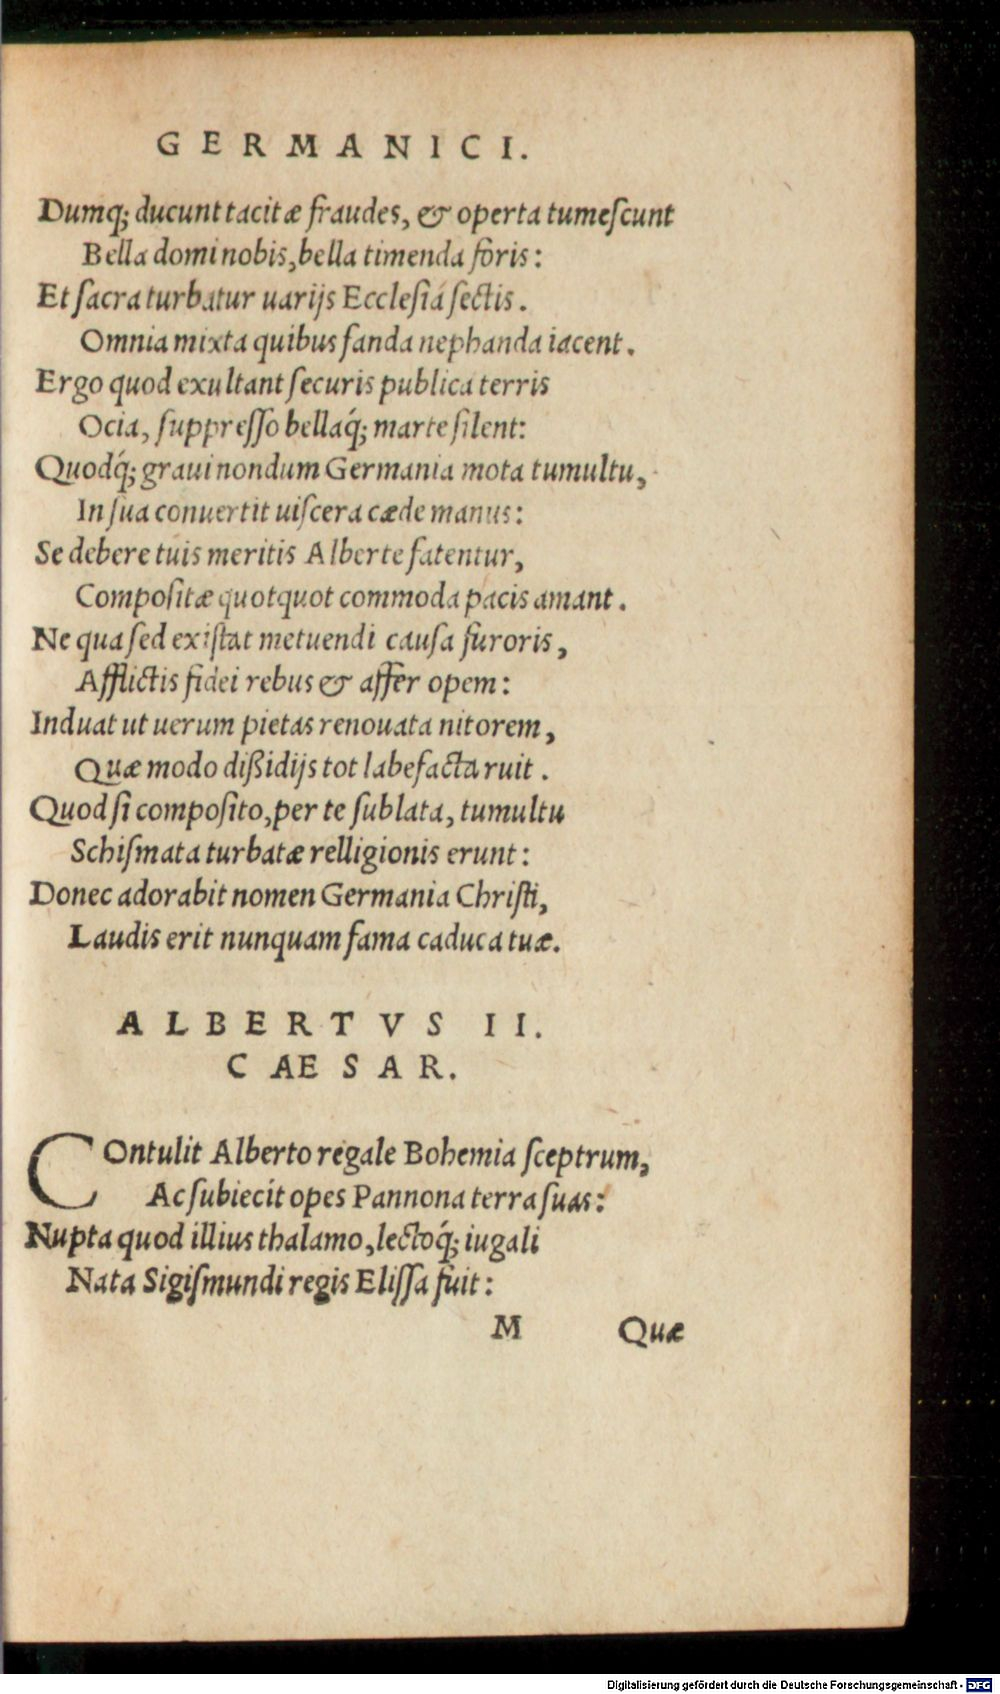 GERMANICI.
Dumq́; ducunt tacitæ fraudes, & operta tumeſcunt
Bella domi nobis, bella timenda foris:
Et ſacra turbatur uarijs Eccleſia ſectis.
Omnia mixta quibus fanda nephanda iacent.
Ergo quod exultant ſecuris publica terris
Ocia, ſuppreſſo bellaq́; marte ſilent:
Quodq́; graui nondum Germania mota tumultu,
In ſua conuertit uiſcera cæde manus:
Se debere tuis meritis Alberte fatentur,
Compoſitæ quotquot commoda pacis amant.
Ne qua ſed exiſtat metuendi cauſa furoris,
Afflictis fidei rebus & affer opem:
Induat ut uerum pietas renouata nitorem,
Quæ modo dißidijs tot labefacta ruit.
Quod ſi compoſito, per te ſublata, tumultu
Schiſmata turbatæ relligionis erunt:
Donec adorabit nomen Germania Chriſti,
Laudis erit nunquam fama caduca tuæ.
ALBERTVS II.
CAESAR.
COntulit Alberto regale Bohemia ſceptrum,
Ac ſubiecit opes Pannona terra ſuas:
Nupta quod illius thalamo, lectoq́; iugali
Nata Sigiſmundi regis Eliſſa fuit:
M Quæ
Digitalisierung gefördert durch die Deutsche Forschungsgemeinschaft - DFG